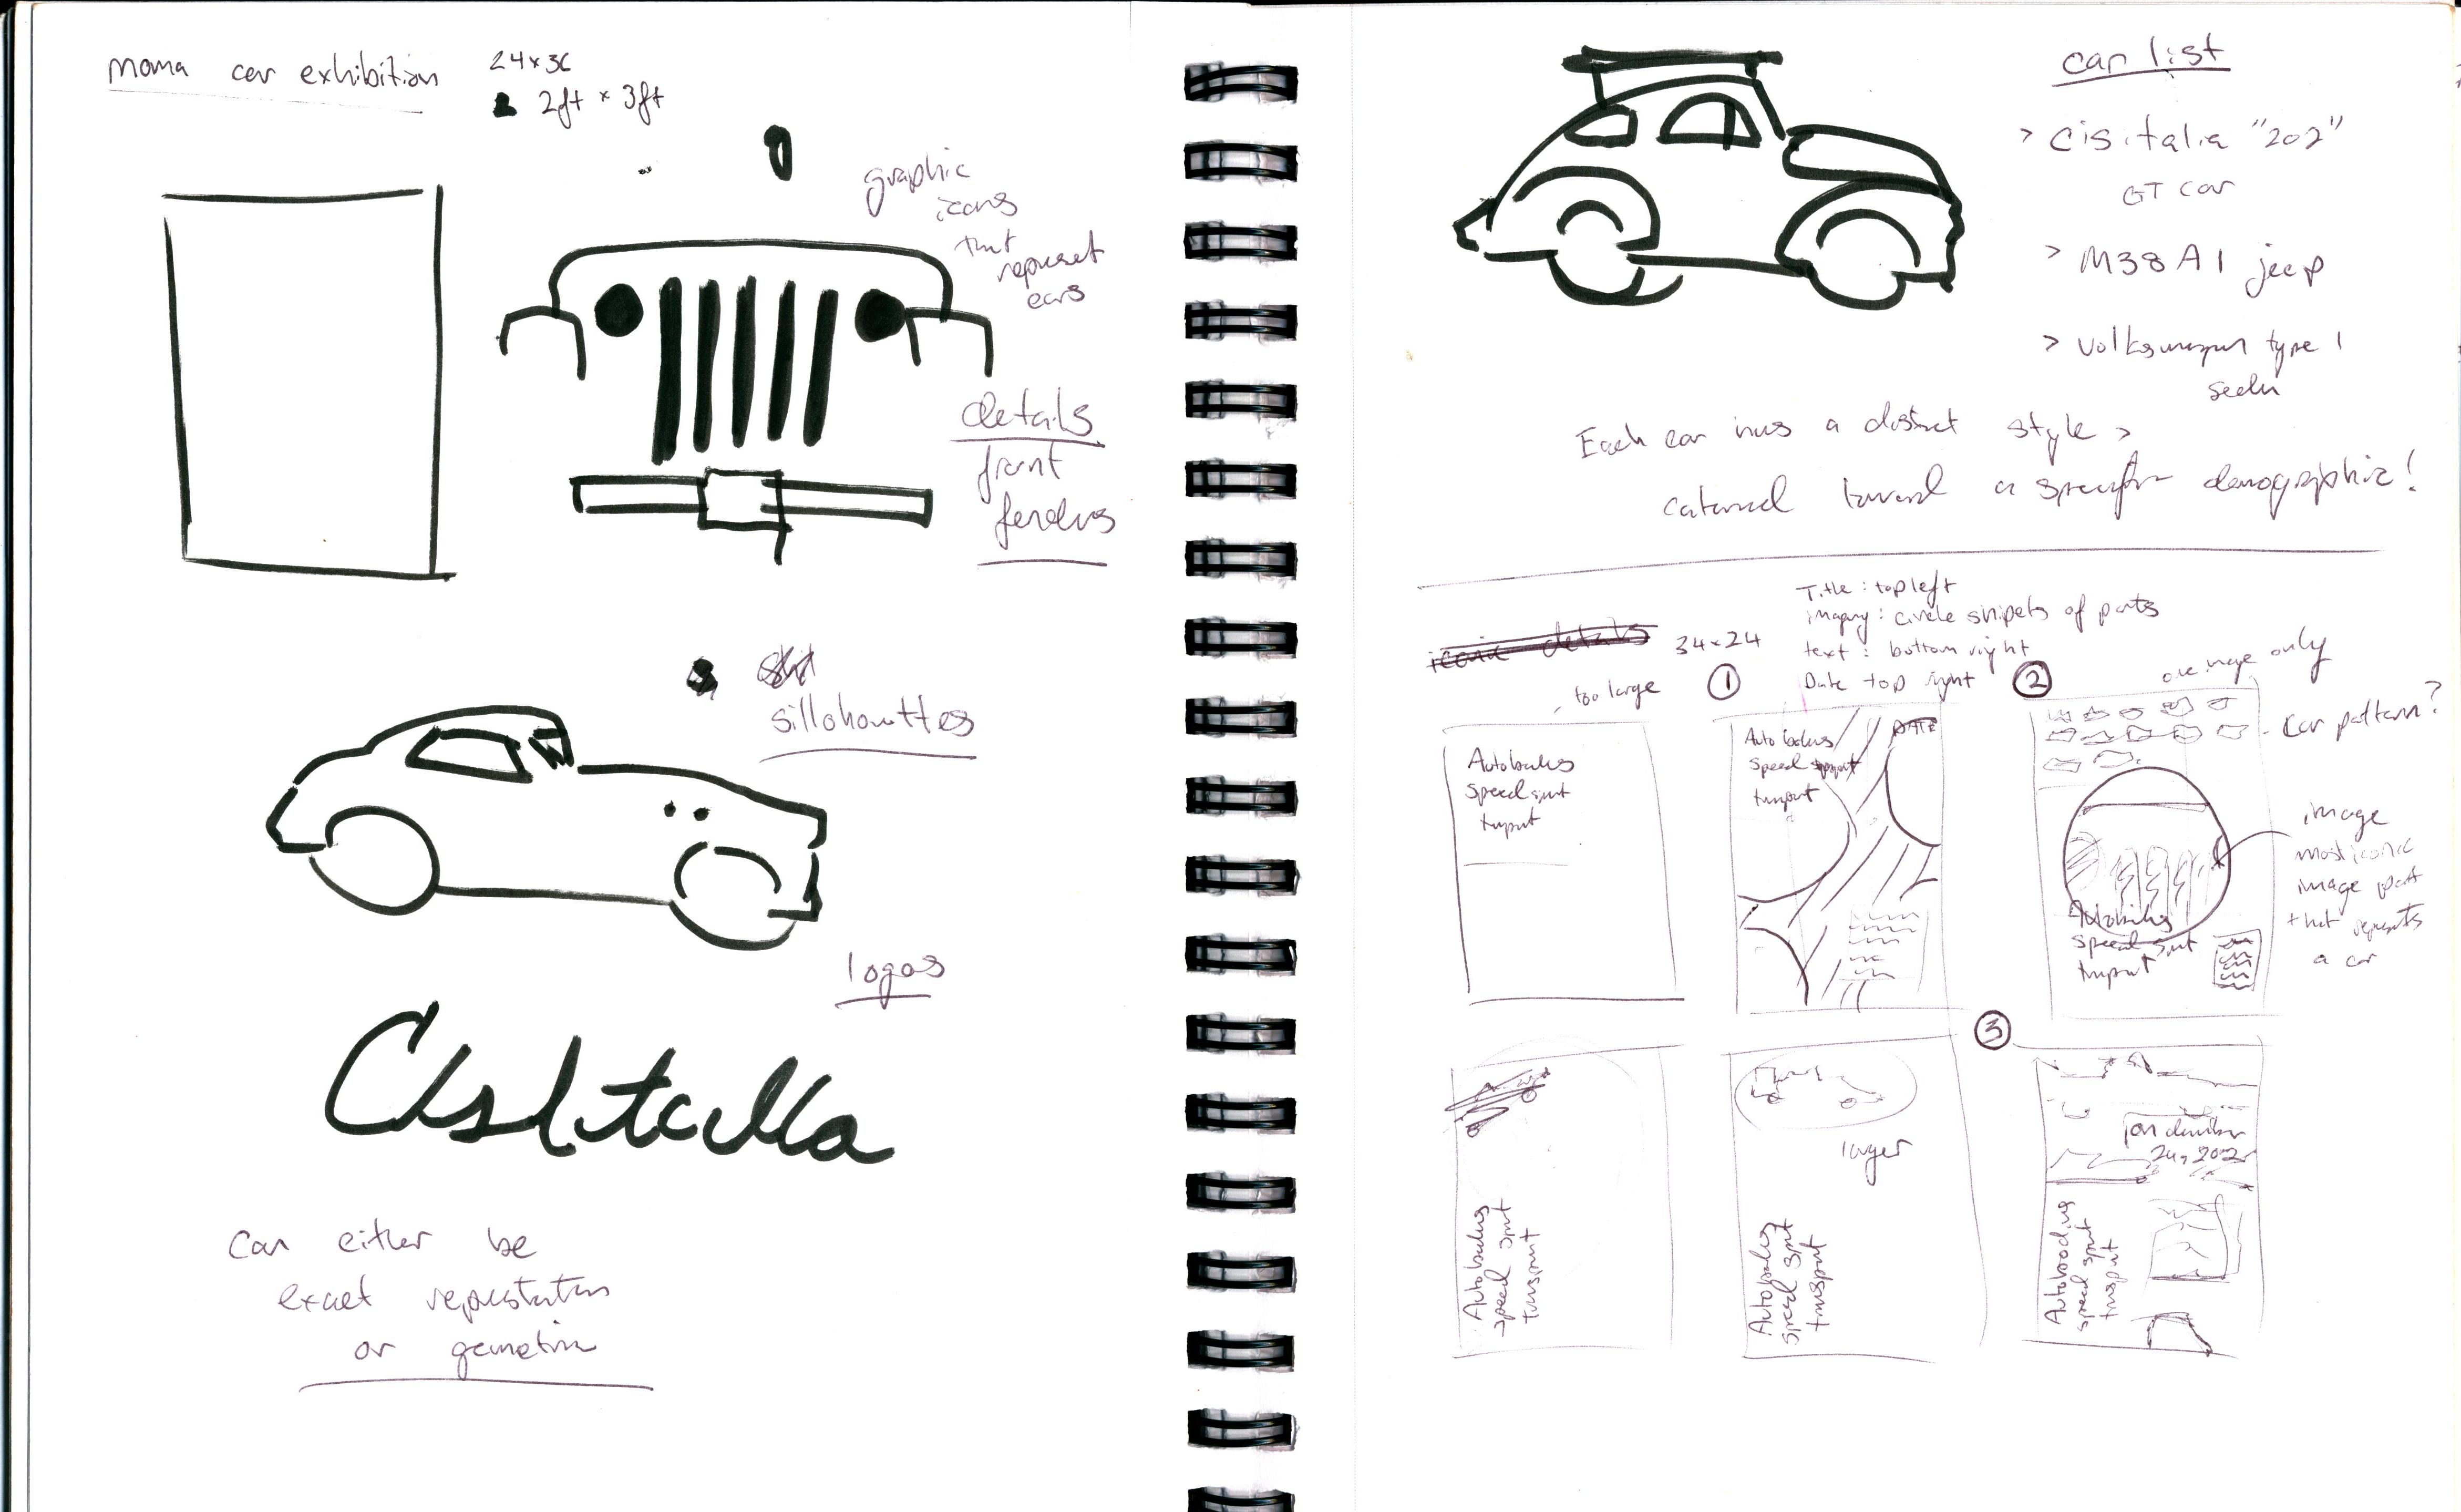 moma car exhibition
24x36
2ft x 3ft
graphic
icons
that
represet
cars
details
front
fenders
sillohouttes
logos
Cisitalia
can either be
exact
or
car list
> Cisitalia "202"
GT car
> M38A1 jeep
> Volkswagen type 1
Each car has a distinct style >
catered toward a specific demographic!
iconic details
34x24
Title: top left
imagery: circle snipets of parts
text: bottom right
Date top right
too large
1
2
one image only
car pattern?
Autobodies
speed sprt
Autobodies
speed
DATE
image
most iconic
image part
that represents
a car
Autobodies
speed sprt
3
larger
24, 2002
Autobodies
speed sprt
transport
Autobodies
speed sprt
transport
Autobodies
speed sprt